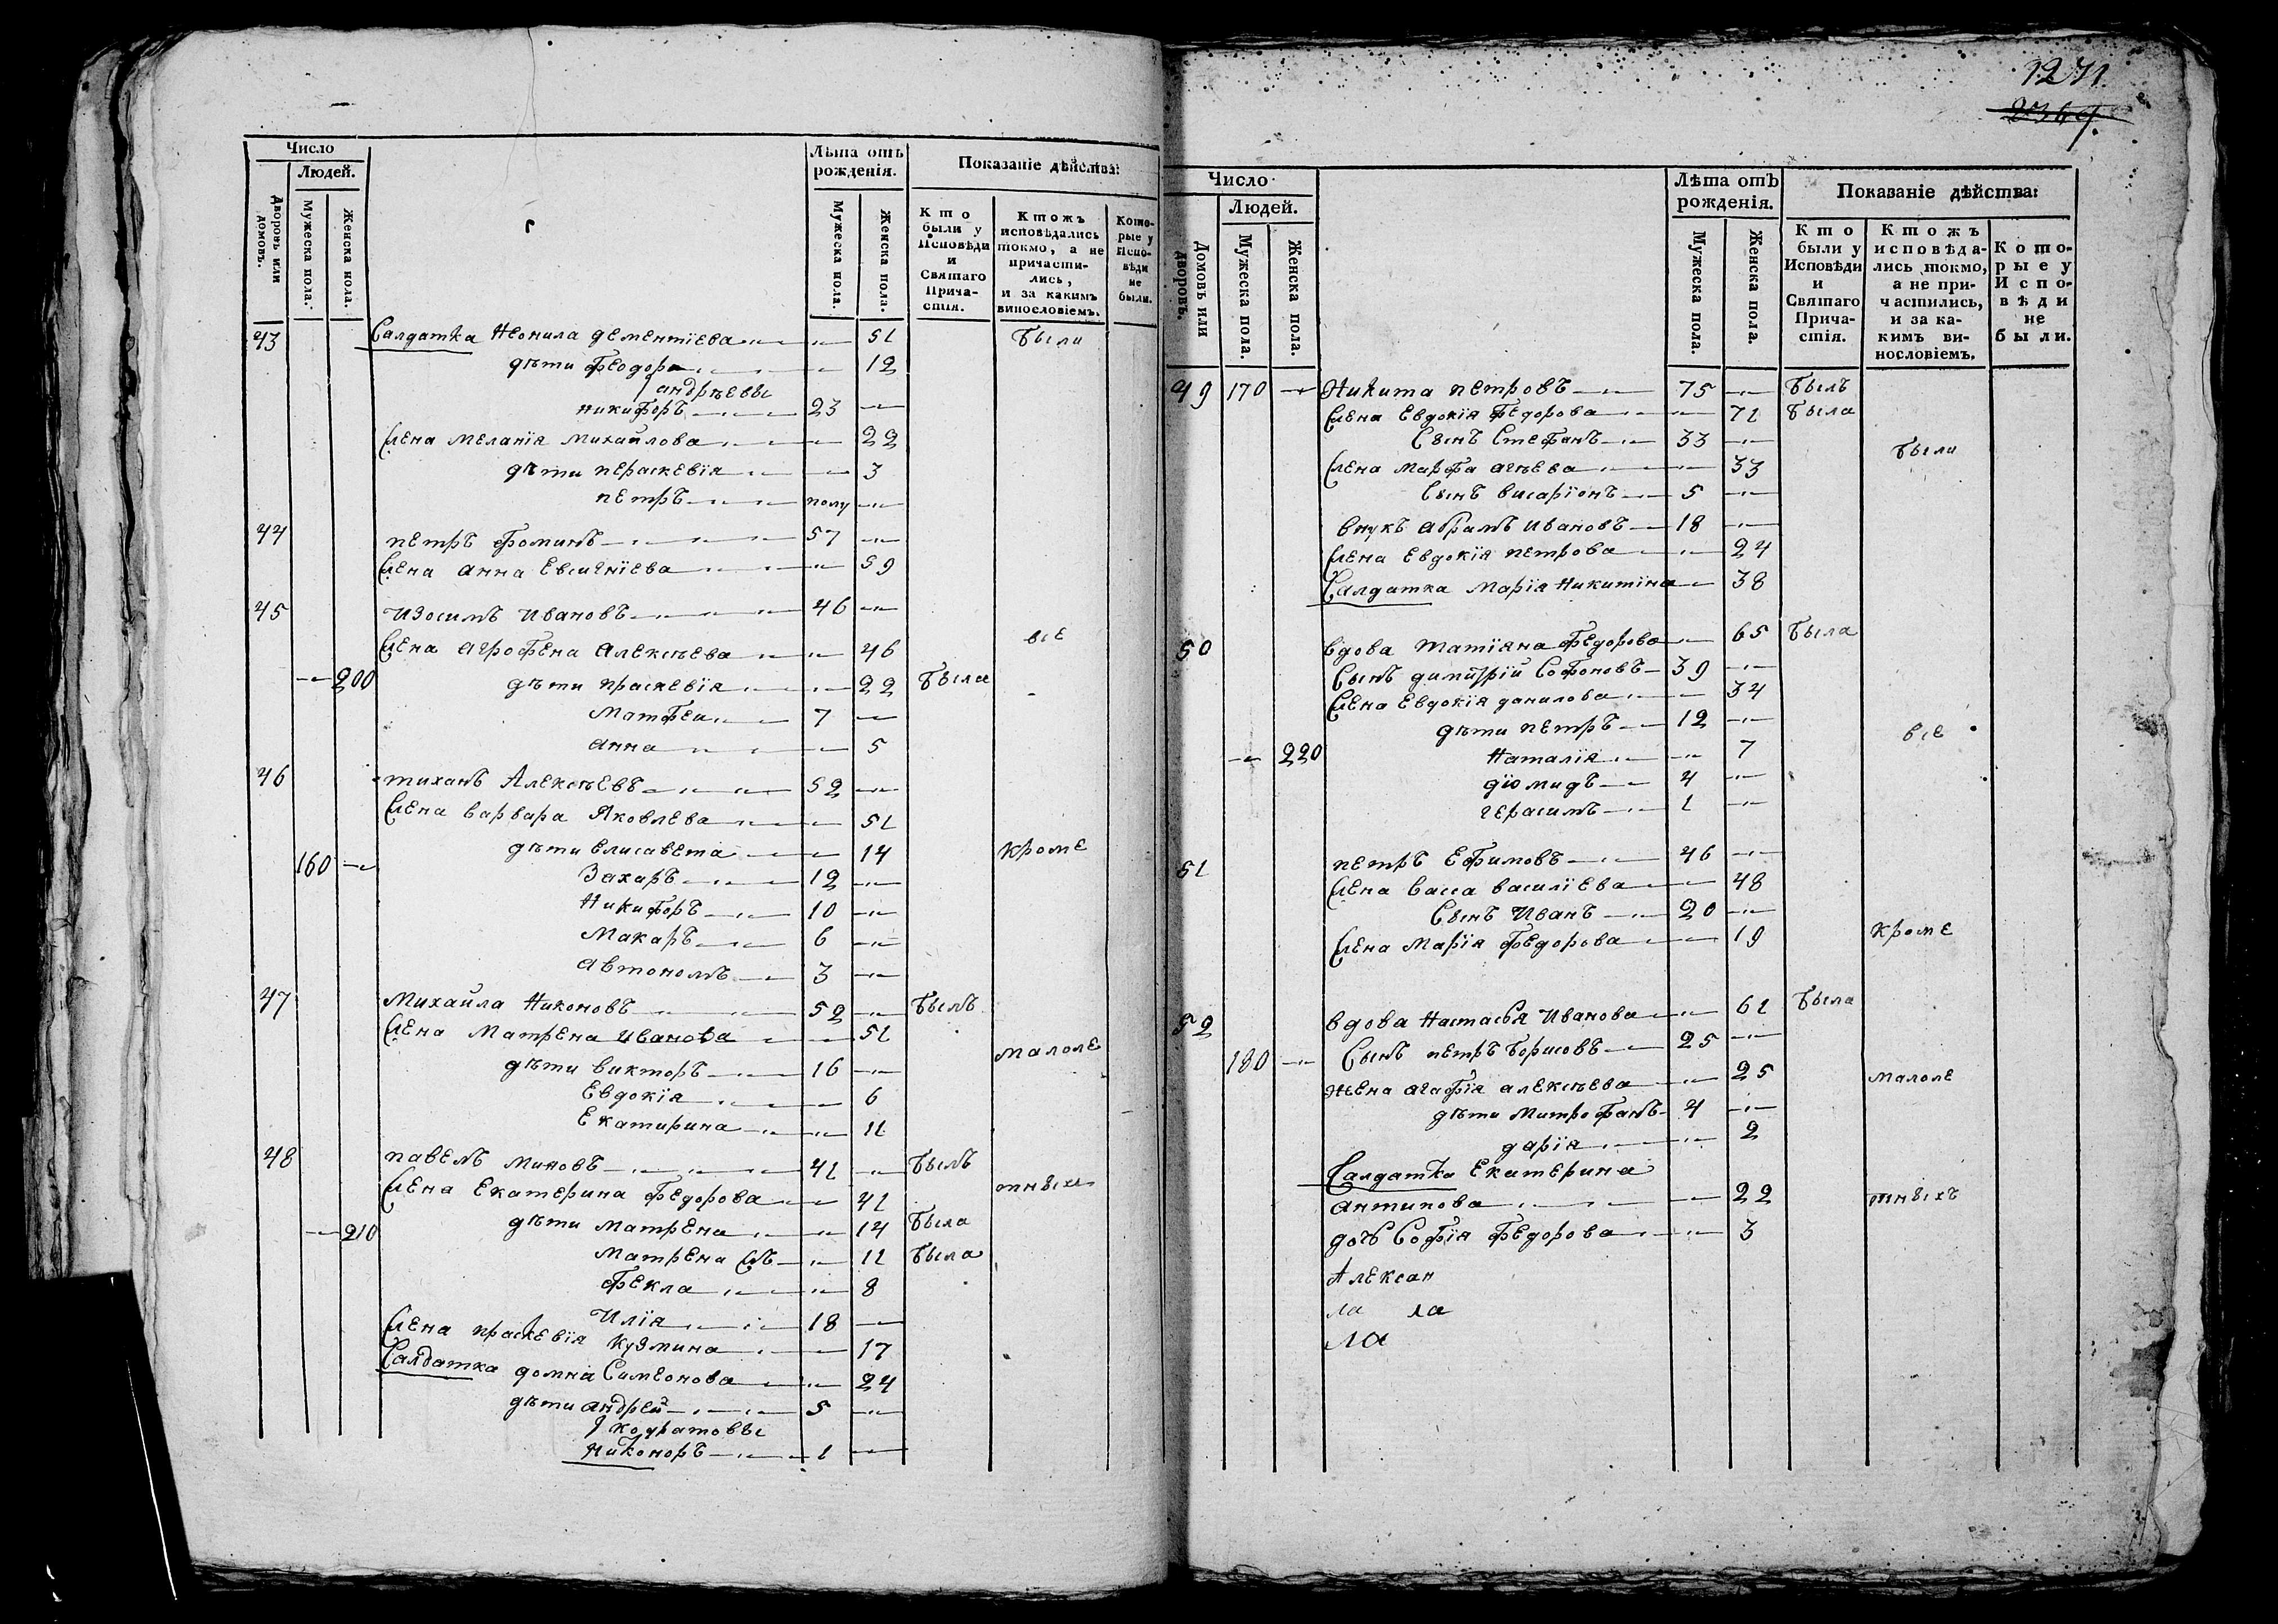 Число
Людей.
Дворовъ или домовъ.
Мужеска пола.
Женска пола.
Лѣта отъ рожденія.
Мужеска пола.
Женска пола.
Показаніе дѣйства:
Кто были у Исповѣди и Святаго Прича-стія.
Ктожъ исповѣдались токмо, а не причасти-лись, и за какимъ винословіемъ.
Кото-рые у Испо-вѣди не были.
43 Салдатка Неонила дементїева 51 были
дѣти Феодора 12
андрѣевы
никифоръ 23
жена меланїя михайлова 22
дѣти пераскевїя 3
петръ полу
44 петръ фоминъ 57
жена анна Евсигнїева 59
45 Изосимъ Ивановъ 46
жена агрофена алексѣева 46 все
200 дѣти праскевїя 22 была
матфеи 7
анна 5
46 тиханъ Алексѣевъ 52
жена варвара Яковлева 51
160 дѣти елисавета 14 кроме
Захаръ 12
Никифоръ 10
Макаръ 6
автономъ 3
47 михайла Никоновъ 52 былъ
жена матрена иванова 51
дѣти викторъ 16 малоле
Евдокїя 6
Екатирина 11
48 павелъ миновъ 41 былъ
жена Екатерина Федорова 41 тныхъ
210 дѣти матрена 14 была
матрена 11 была
фекла 8
Илїя 18
жена праскевїя кузмина 17
Салдатка домна Симеонова 24
дѣти андрей 5
кодратовы
Никоноръ 1
1271
2369.
Число
Людей.
Домовъ или дворовъ.
Мужеска пола.
Женска пола.
Лѣта отъ рожденія.
Мужеска пола.
Женска пола.
Показаніе дѣйства:
Кто были у Исповѣди и Святаго Прича-стія.
Ктожъ исповѣда-лись токмо, а не при-частились, и за ка-кимъ ви-нословіемъ.
Кото-рые у Испо-вѣди не были.
49 170 Никита петровъ 75 былъ
жена Евдокїя Федорова 71 была
Сынъ Стефанъ 33
жена марфа агѣева 33 были
Сынъ висарїонъ 5
внукъ абрамъ ивановъ 18
жена Евдокїя петрова 24
Салдатка марїя Никитїна 38
50 вдова татїяна Федорова 65 была
Сынъ димитрїй Софоновъ 39
жена Евдокїя данилова 34
дѣти петръ 12 все
220 Наталїя 7
дїомидъ 4
герасимъ 1
51 петръ Ефимовъ 46
жена васса василїева 48
Сынъ Иванъ 20
жена марїя Федорова 19 кроме
52 вдова настасья Иванова 61 была
180 Сынъ петръ борисовъ 25
жена агафїя алексѣева 25 малоле
дѣти митрофанъ 4
дарїя 2
Салдатка Екатерина
антипова 22 тныхъ
дочь Софїя Федорова 3
Алексан
ла ла
ла